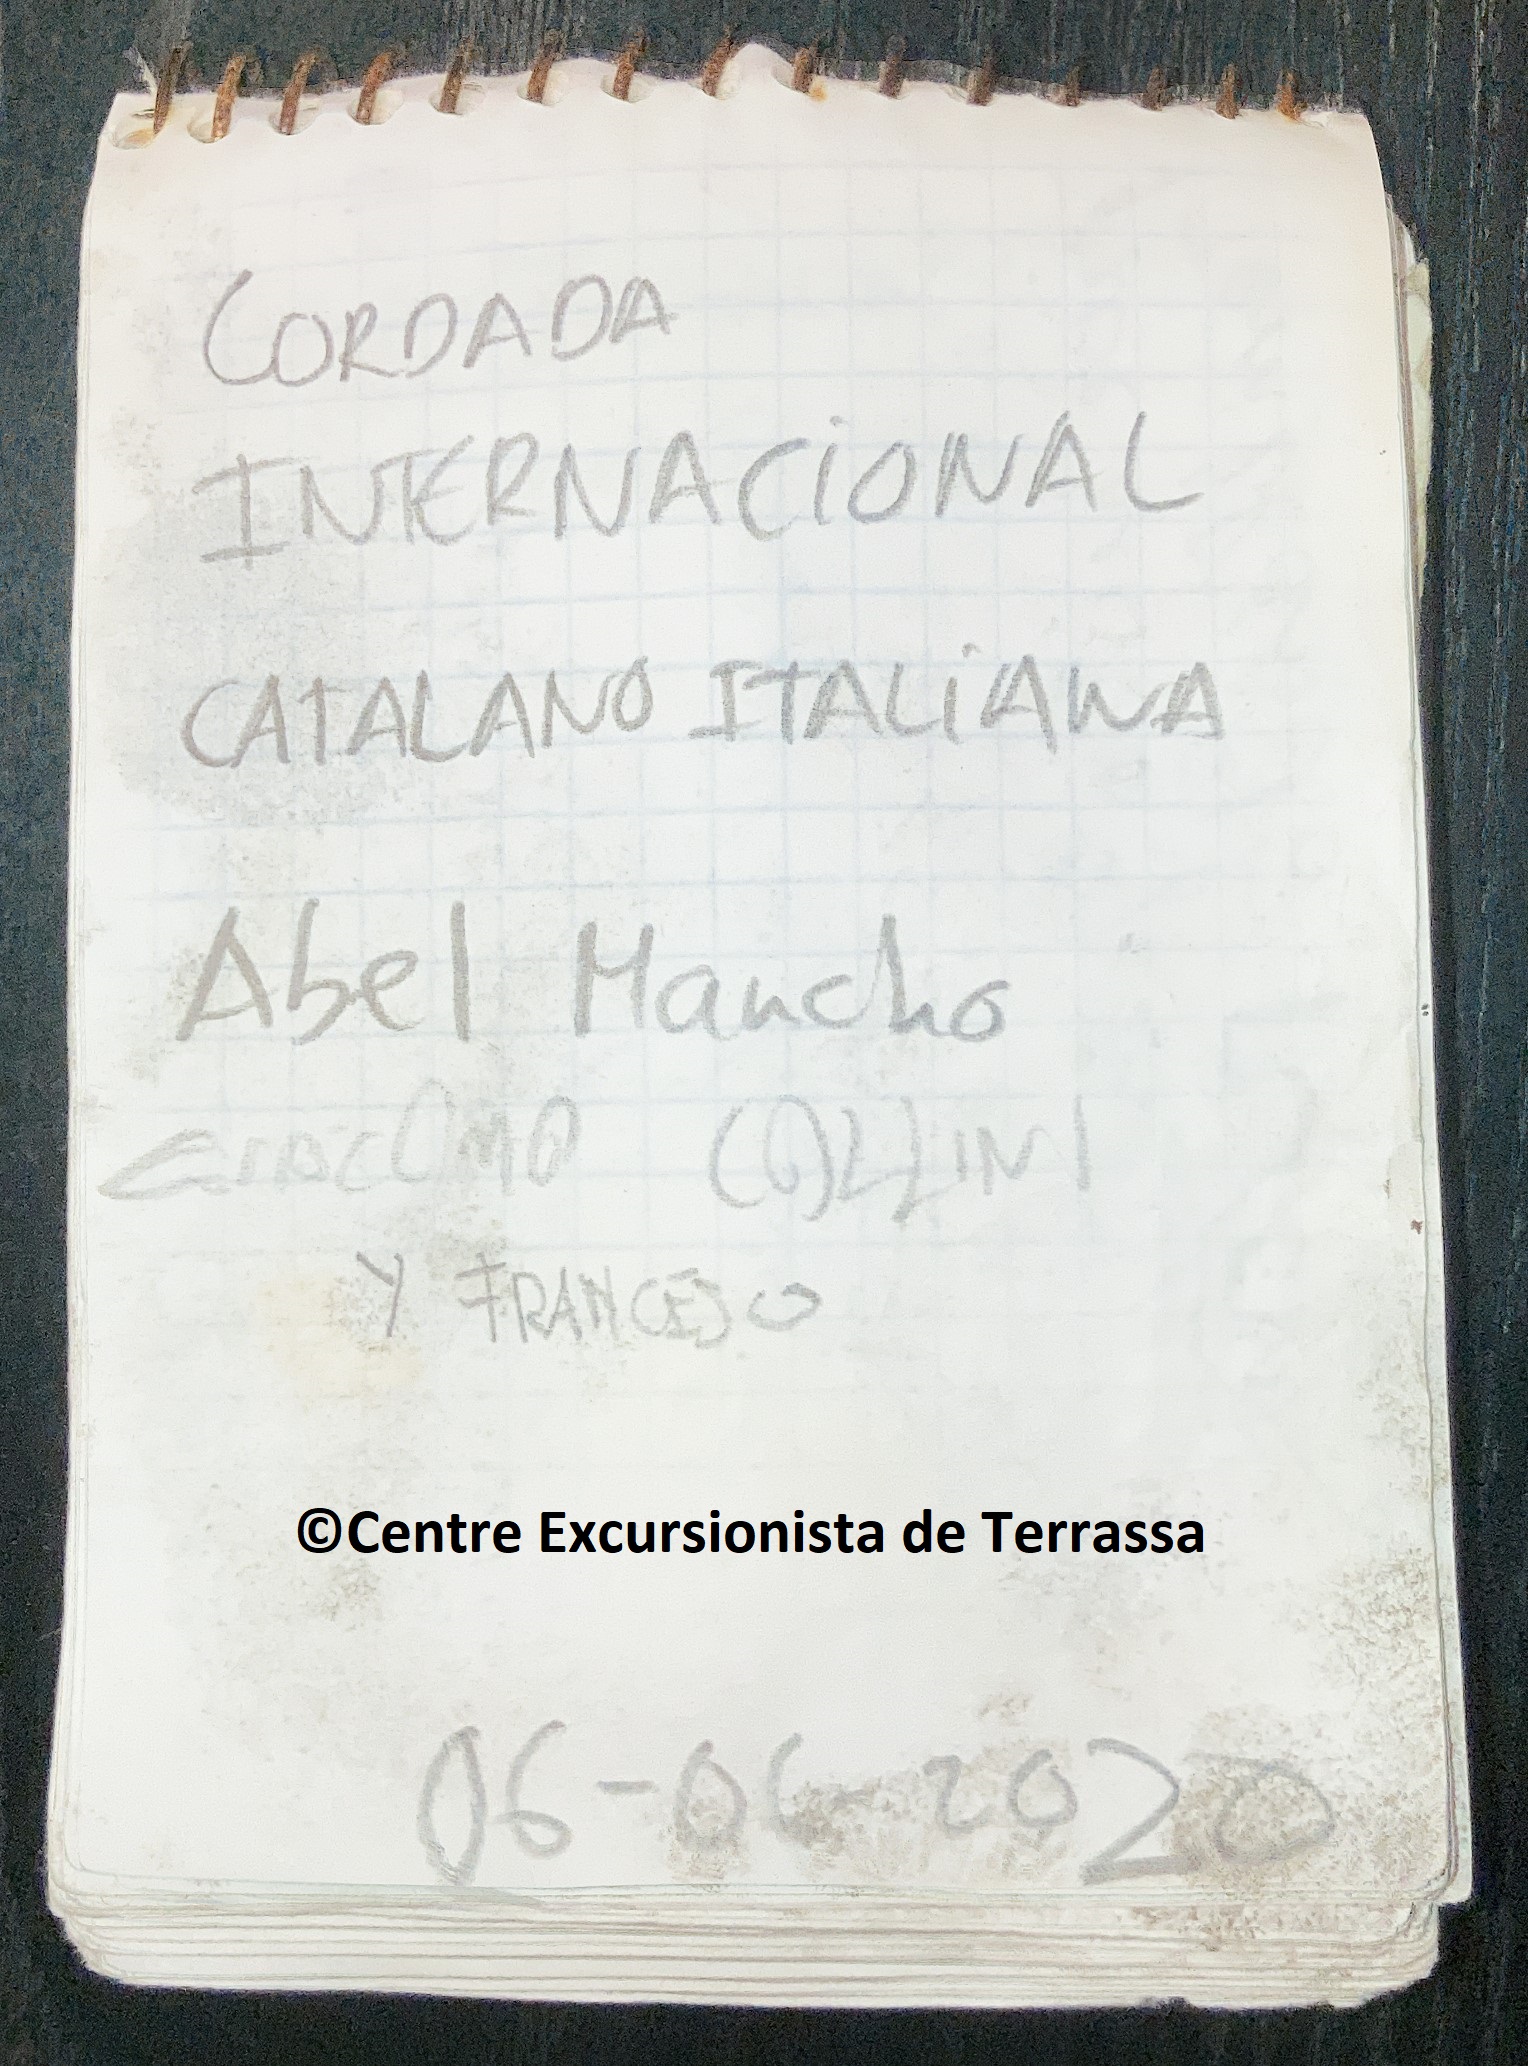 CORDADA
INTERNACIONAL
CATALANO ITALIANA
Abel Mancho
GIACOMO
Y FRANCESO
©Centre Excursionista de Terrassa
06-06-2020